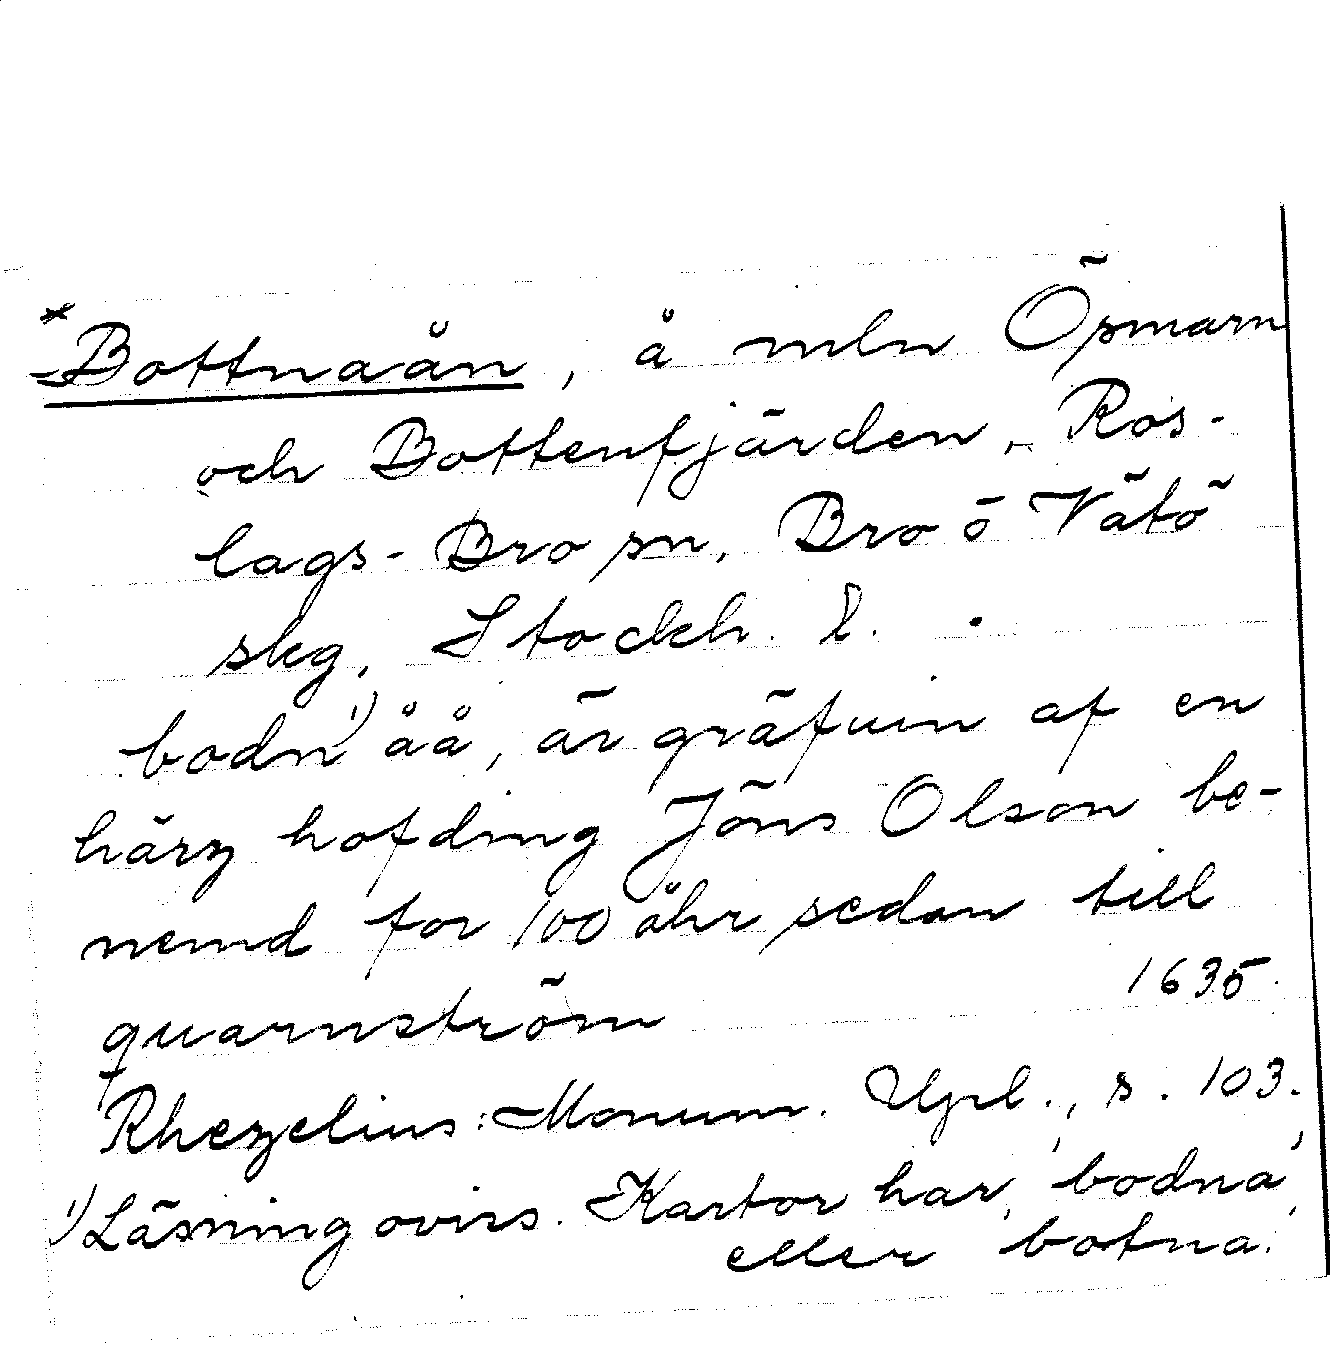 * Bottnaån, å mln Ösmarn
och Bottenfjärden, Ros-
lags-Bro sn, Bro ö Vätö
skg, Stockh. l.
bodn¹⁾ åå, är gräfuin af en
härz hofding Jöns Olson be-
nemd for 100 åhr sedan till
quarnström 1635.
Rhezelius: Monum. Upl., s. 103.
¹⁾ Läsning oviss. Kartor har 'bodna'
eller 'botna'.